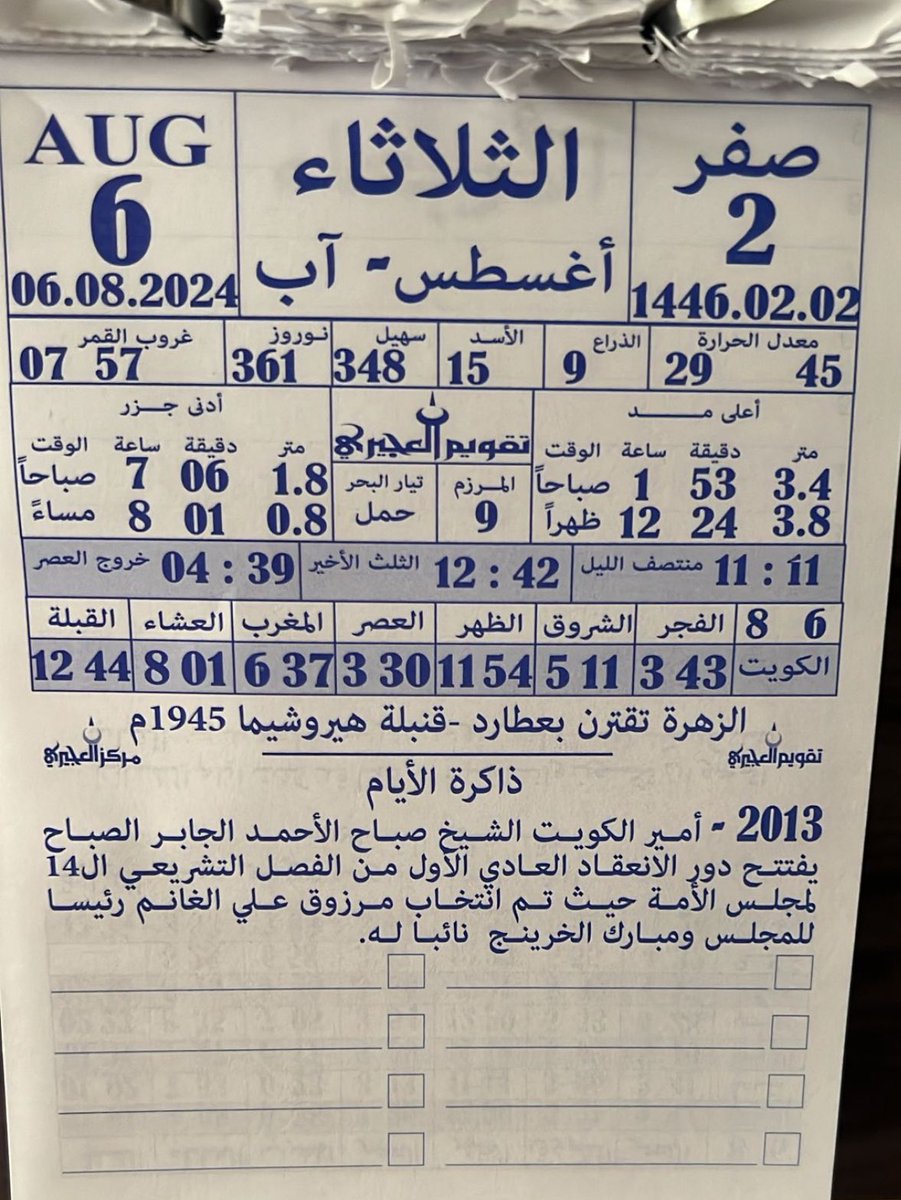 صفر
2
1446.02.02
الثلاثاء
أغسطس - آب
AUG
6
06.08.2024
معدل الحرارة 45 29
الذراع 9
الأسد 15
سهيل 348
نوروز 361
غروب القمر 07 57
أعلى مد
متر دقيقة ساعة الوقت
3.4 53 1 صباحاً
3.8 24 12 ظهراً
تقويم العجيري
المرزم 9
تيار البحر حمل
أدنى جزر
متر دقيقة ساعة الوقت
1.8 06 7 صباحاً
0.8 01 8 مساءً
منتصف الليل 11 : 11 الثلث الأخير 12 : 42 خروج العصر 04 : 39
6 8 الفجر الشروق الظهر العصر المغرب العشاء القبلة
الكويت 3 43 5 11 11 54 3 30 6 37 8 01 12 44
الزهرة تقترن بعطارد -قنبلة هيروشيما 1945م
تقويم العجيري
مركز العجيري
ذاكرة الأيام
2013 - أمير الكويت الشيخ صباح الأحمد الجابر الصباح
يفتتح دور الانعقاد العادي الأول من الفصل التشريعي ال14
لمجلس الأمة حيث تم انتخاب مرزوق علي الغانم رئيسا
للمجلس ومبارك الخرينج نائبا له.